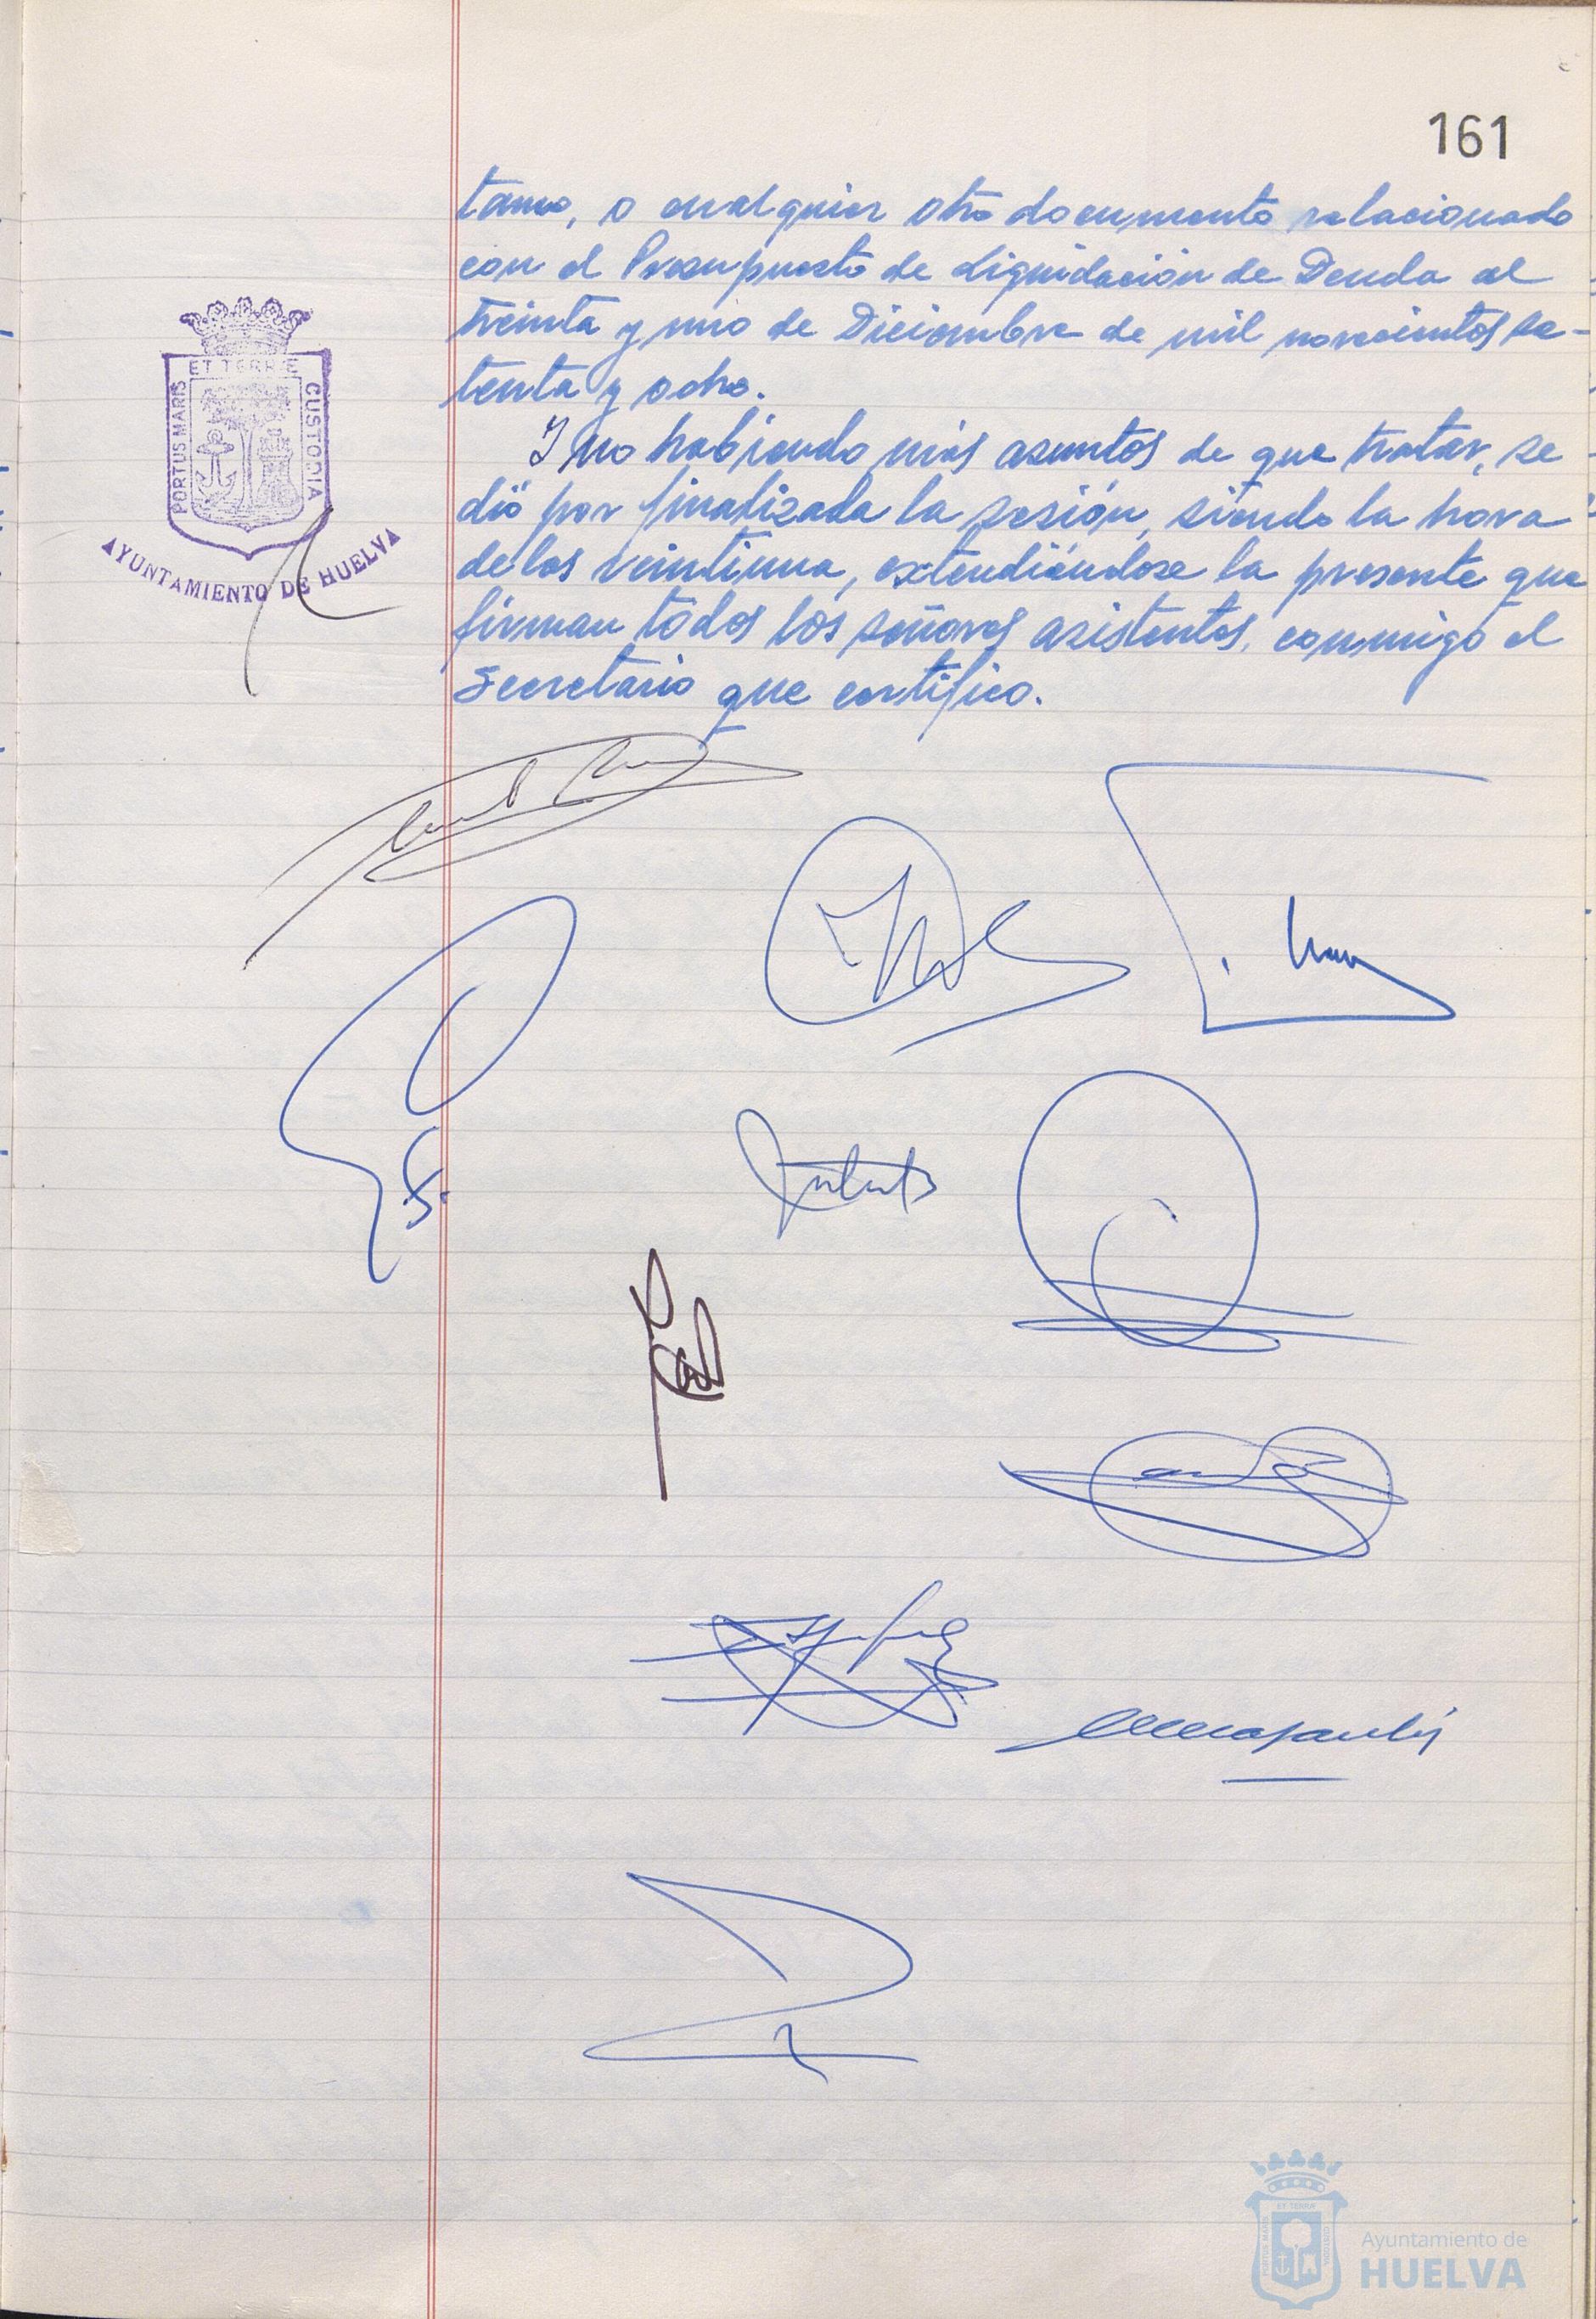 161
tamo, o cualquier otro documento relacionado
con el Presupuesto de Liquidación de Deuda al
treinta y uno de Diciembre de mil novecientos se-
tenta y ocho.
Y no habiendo más asuntos de que tratar, se
dió por finalizada la sesión, siendo la hora
de las veintiuna, extendiéndose la presente que
firman todos los señores asistentes, conmigo el
Secretario que certifico.
PORTUS MARIS ET TERRÆ CUSTODIA
AYUNTAMIENTO DE HUELVA
PORTUS MARIS ET TERRA CUSTODIA
Ayuntamiento de
HUELVA